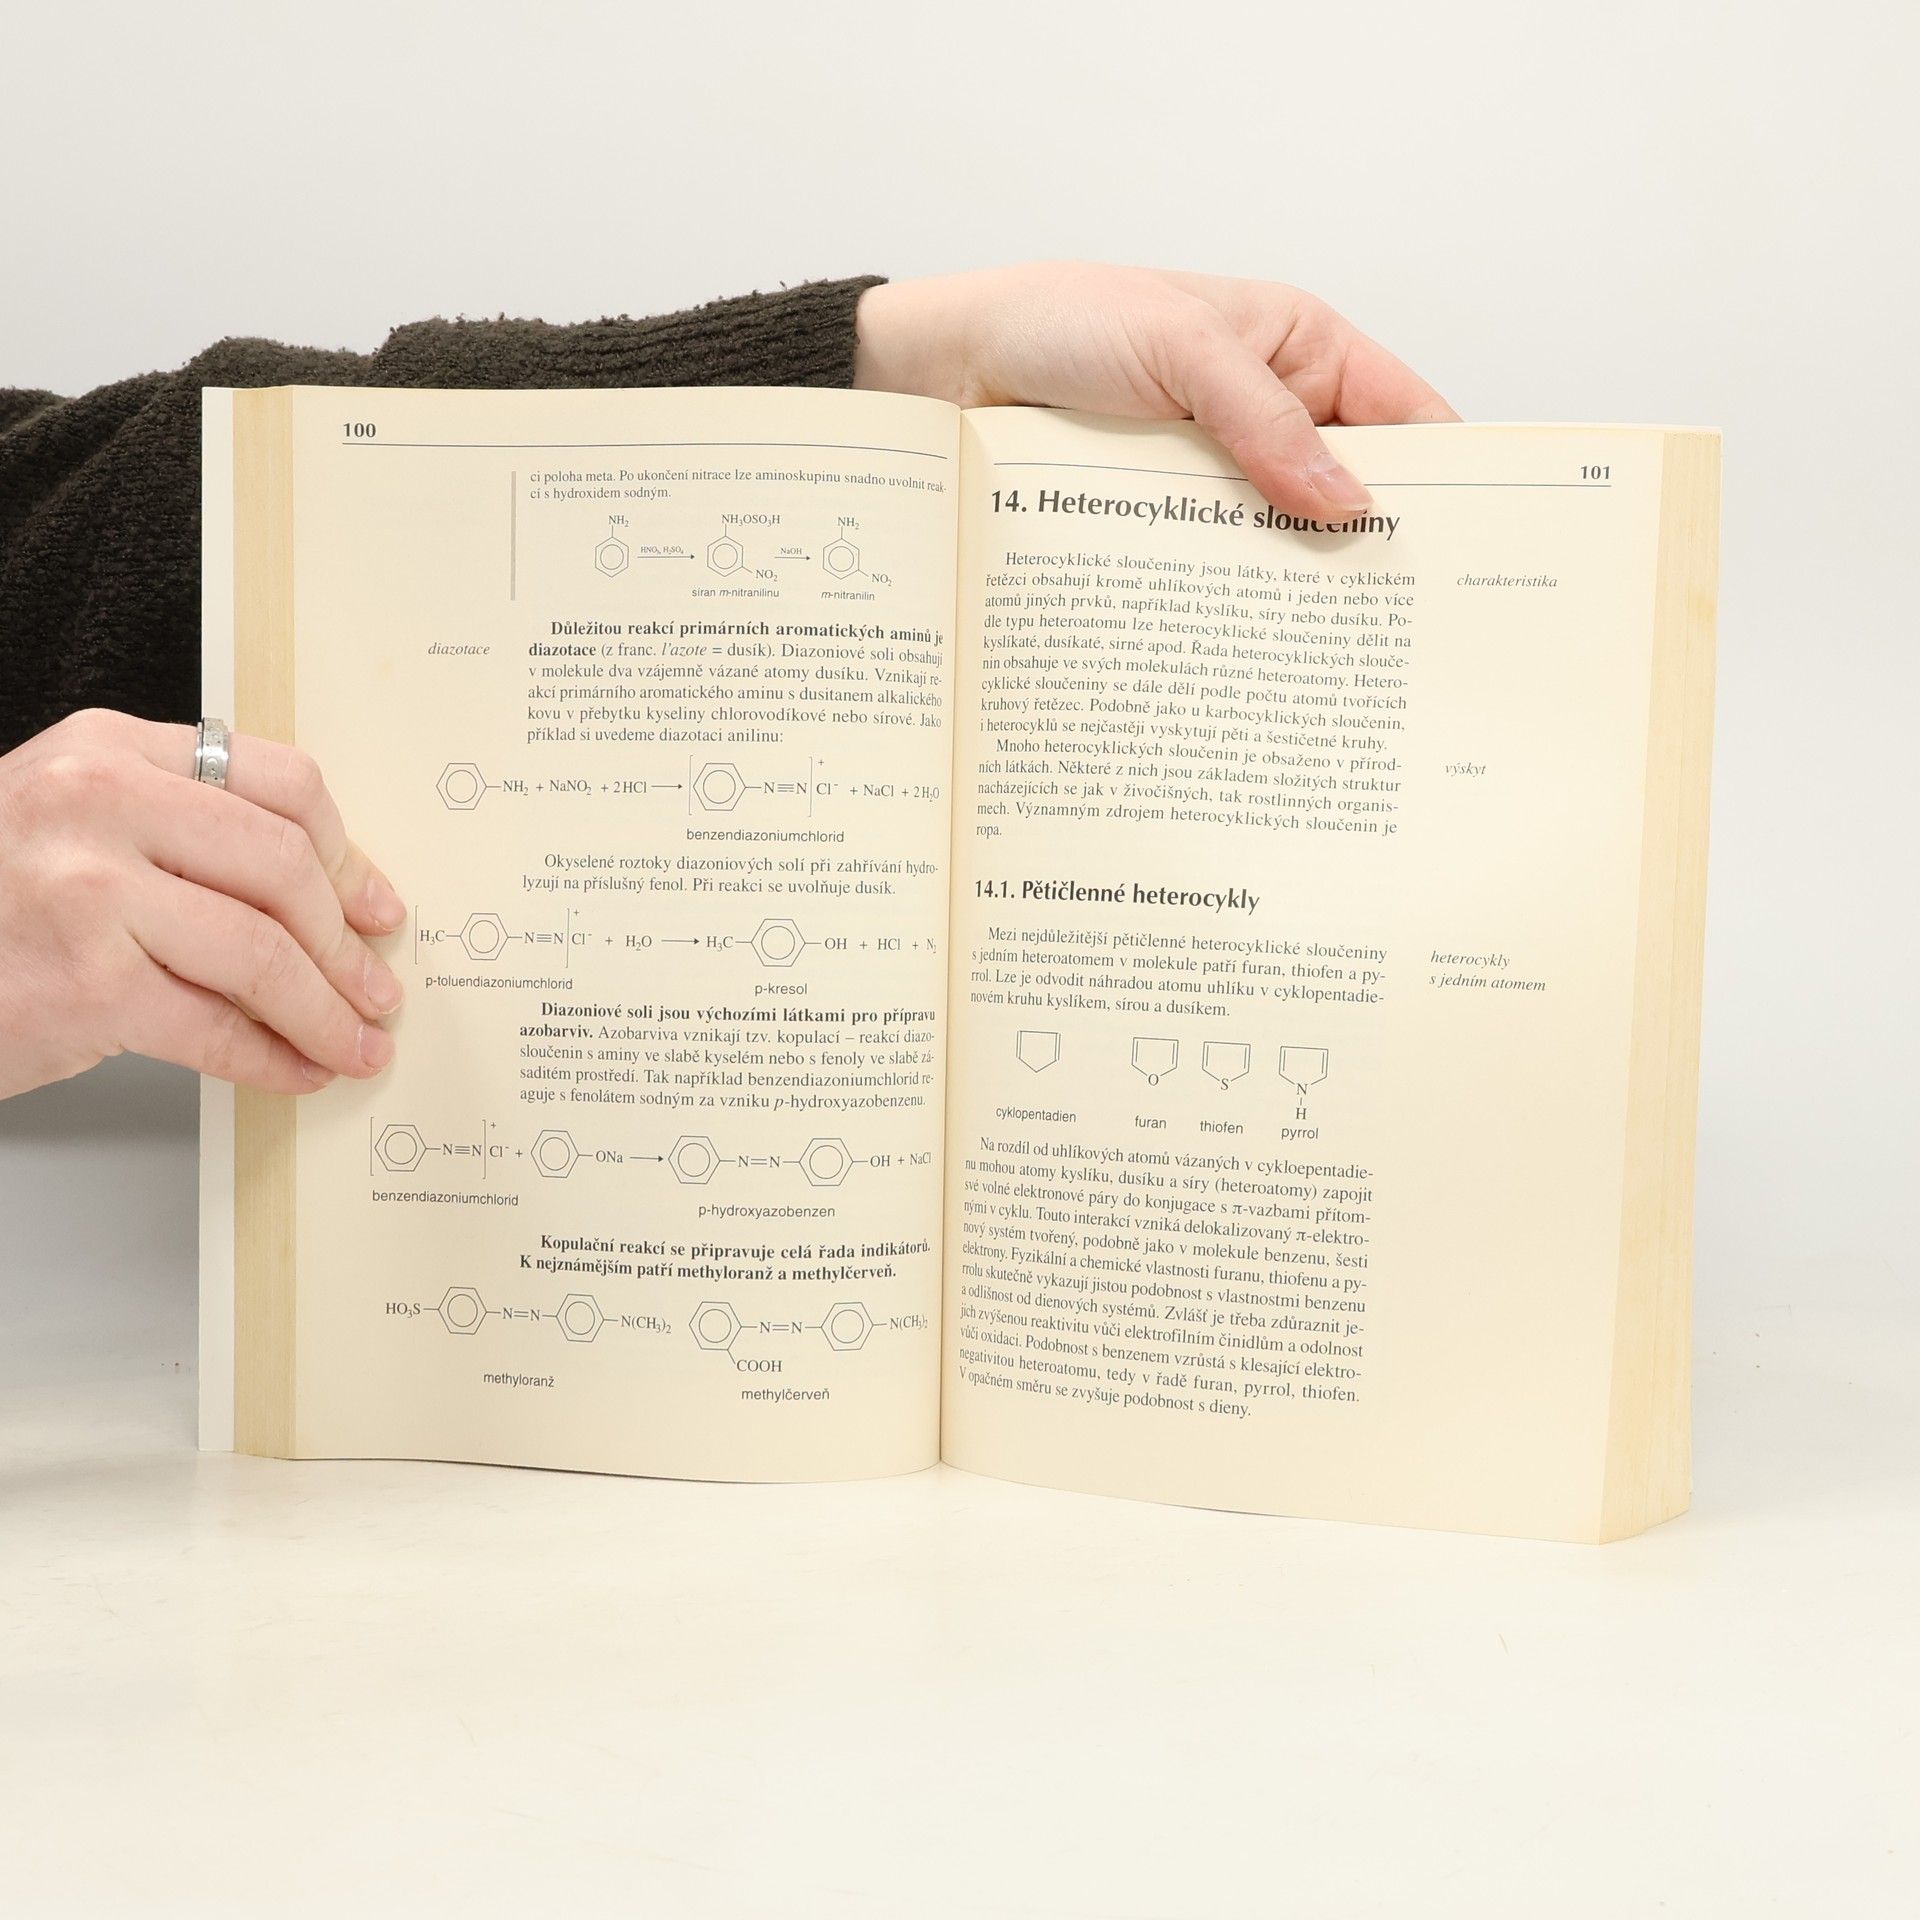 100
ci poloha meta. Po ukončení nitrace lze aminoskupinu snadno uvolnit reak-
cí s hydroxidem sodným.
NH₂ NH₃OSO₃H NH₂
HNO₃, H₂SO₄ NaOH
NO₂ NO₂
síran m-nitranilinu m-nitranilin
Důležitou reakcí primárních aromatických aminů je
diazotace
diazotace (z franc. l'azote = dusík). Diazoniové soli obsahují
v molekule dva vzájemně vázané atomy dusíku. Vznikají re-
akcí primárního aromatického aminu s dusitanem alkalického
kovu v přebytku kyseliny chlorovodíkové nebo sírové. Jako
příklad si uvedeme diazotaci anilinu:
NH₂ + NaNO₂ + 2HCl → [N≡N]⁺ Cl⁻ + NaCl + 2H₂O
benzendiazoniumchlorid
Okyselené roztoky diazoniových solí při zahřívání hydro-
lyzují na příslušný fenol. Při reakci se uvolňuje dusík.
[H₃C N≡N]⁺ Cl⁻ + H₂O → H₃C OH + HCl + N₂
p-toluendiazoniumchlorid p-kresol
Diazoniové soli jsou výchozími látkami pro přípravu
azobarviv. Azobarviva vznikají tzv. kopulací – reakcí diazo-
sloučenin s aminy ve slabě kyselém nebo s fenoly ve slabě zá-
saditém prostředí. Tak například benzendiazoniumchlorid re-
aguje s fenolátem sodným za vzniku p-hydroxyazobenzenu.
[N≡N]⁺ Cl⁻ + ONa → N=N OH + NaCl
benzendiazoniumchlorid p-hydroxyazobenzen
Kopulační reakcí se připravuje celá řada indikátorů.
K nejznámějším patří methyloranž a methylčerveň.
HO₃S N=N N(CH₃)₂ N=N N(CH₃)₂
COOH
methyloranž methylčerveň
101
14. Heterocyklické sloučeniny
Heterocyklické sloučeniny jsou látky, které v cyklickém
charakteristika
řetězci obsahují kromě uhlíkových atomů i jeden nebo více
atomů jiných prvků, například kyslíku, síry nebo dusíku. Po-
dle typu heteroatomu lze heterocyklické sloučeniny dělit na
kyslíkaté, dusíkaté, sirné apod. Řada heterocyklických slouče-
nin obsahuje ve svých molekulách různé heteroatomy. Hetero-
cyklické sloučeniny se dále dělí podle počtu atomů tvořících
kruhový řetězec. Podobně jako u karbocyklických sloučenin,
i heterocyklů se nejčastěji vyskytují pěti a šestičetné kruhy.
Mnoho heterocyklických sloučenin je obsaženo v přírod-
výskyt
ních látkách. Některé z nich jsou základem složitých struktur
nacházejících se jak v živočišných, tak rostlinných organis-
mech. Významným zdrojem heterocyklických sloučenin je
ropa.
14.1. Pětičlenné heterocykly
Mezi nejdůležitější pětičlenné heterocyklické sloučeniny
heterocykly
s jedním heteroatomem v molekule patří furan, thiofen a py-
s jedním atomem
rrol. Lze je odvodit náhradou atomu uhlíku v cyklopentadie-
novém kruhu kyslíkem, sírou a dusíkem.
O S N
H
cyklopentadien furan thiofen pyrrol
Na rozdíl od uhlíkových atomů vázaných v cykloepentadie-
nu mohou atomy kyslíku, dusíku a síry (heteroatomy) zapojit
své volné elektronové páry do konjugace s π-vazbami přítom-
nými v cyklu. Touto interakcí vzniká delokalizovaný π-elektro-
nový systém tvořený, podobně jako v molekule benzenu, šesti
elektrony. Fyzikální a chemické vlastnosti furanu, thiofenu a py-
rrolu skutečně vykazují jistou podobnost s vlastnostmi benzenu
a odlišnost od dienových systémů. Zvlášť je třeba zdůraznit je-
jich zvýšenou reaktivitu vůči elektrofilním činidlům a odolnost
vůči oxidaci. Podobnost s benzenem vzrůstá s klesající elektro-
negativitou heteroatomu, tedy v řadě furan, pyrrol, thiofen.
V opačném směru se zvyšuje podobnost s dieny.